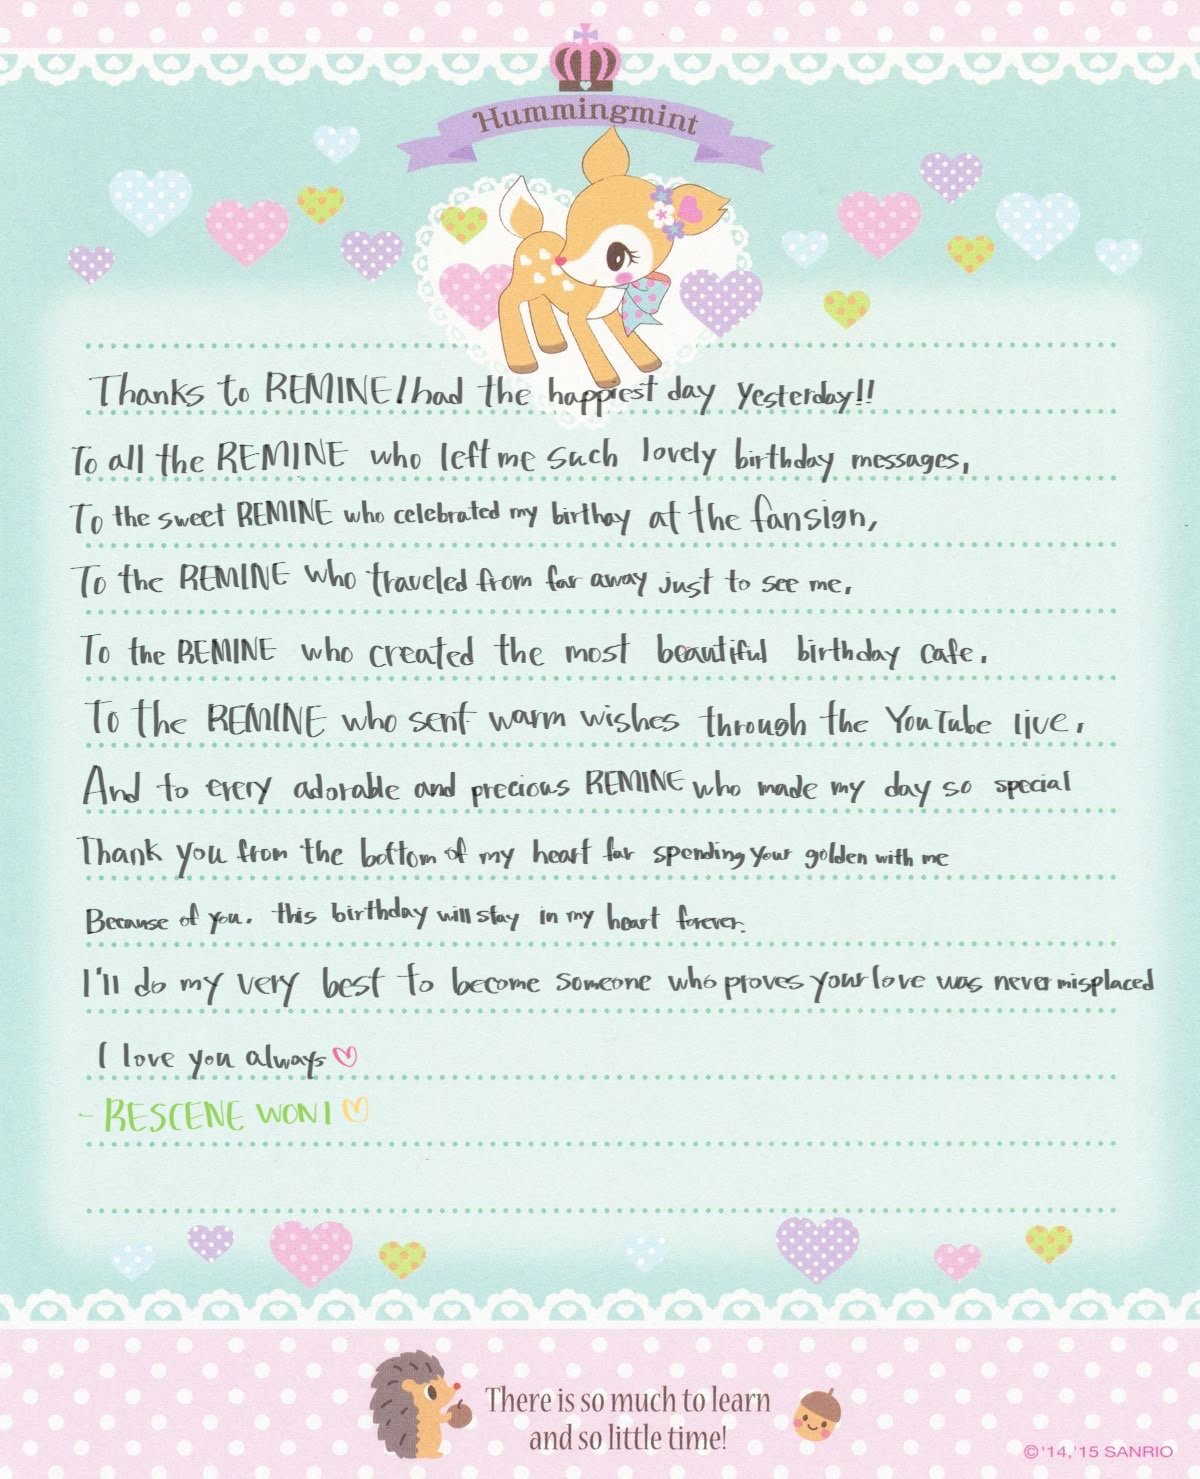 Hummingmint
Thanks to REMINE I had the happiest day yesterday!!
To all the REMINE who left me such lovely birthday messages,
To the sweet REMINE who celebrated my birthay at the fansign,
To the REMINE who traveled from far away just to see me,
To the REMINE who created the most beautiful birthday cafe,
To the REMINE who sent warm wishes through the YouTube live,
And to every adorable and precious REMINE who made my day so special
Thank you from the bottom of my heart for spending your golden with me
Because of you, this birthday will stay in my heart forever.
I'll do my very best to become someone who proves your love was never misplaced
I love you always♡
- RESCENE WONI♡
There is so much to learn
and so little time!
©'14,'15 SANRIO